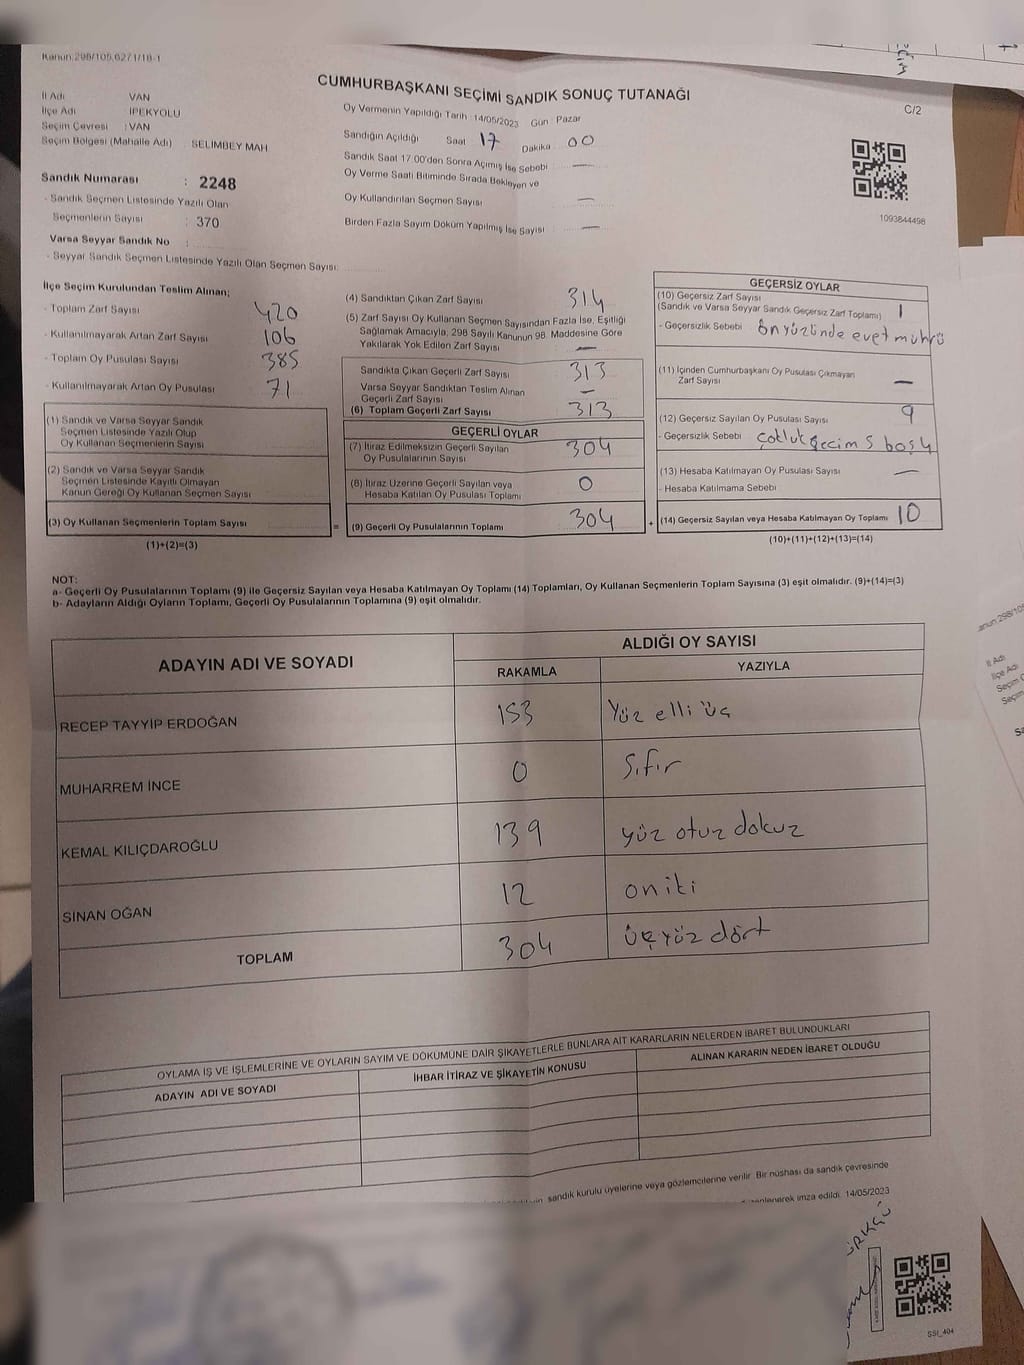 Kanun:298/105,6271/18-1
CUMHURBAŞKANI SEÇİMİ SANDIK SONUÇ TUTANAĞI
C/2
İl Adı VAN
İlçe Adı İPEKYOLU
Seçim Çevresi : VAN
Seçim Bölgesi (Mahalle Adı) : SELİMBEY MAH
Sandık Numarası : 2248
- Sandık Seçmen Listesinde Yazılı Olan
Seçmenlerin Sayısı : 370
Varsa Seyyar Sandık No :
- Seyyar Sandık Seçmen Listesinde Yazılı Olan Seçmen Sayısı:
Oy Vermenin Yapıldığı Tarih : 14/05/2023 Gün : Pazar
Sandığın Açıldığı Saat 17 Dakika 00
Sandık Saat 17:00'den Sonra Açımış İse Sebebi —
Oy Verme Saati Bitiminde Sırada Bekleyen ve
Oy Kullandırılan Seçmen Sayısı —
Birden Fazla Sayım Döküm Yapılmış İse Sayısı —
1093844498
İlçe Seçim Kurulundan Teslim Alınan;
- Toplam Zarf Sayısı 420
- Kullanılmayarak Artan Zarf Sayısı 106
- Toplam Oy Pusulası Sayısı 385
- Kullanılmayarak Artan Oy Pusulası 71
(1) Sandık ve Varsa Seyyar Sandık
Seçmen Listesinde Yazılı Olup
Oy Kullanan Seçmenlerin Sayısı
(2) Sandık ve Varsa Seyyar Sandık
Seçmen Listesinde Kayıtlı Olmayan
Kanun Gereği Oy Kullanan Seçmen Sayısı
(3) Oy Kullanan Seçmenlerin Toplam Sayısı =
(1)+(2)=(3)
(4) Sandıktan Çıkan Zarf Sayısı 314
(5) Zarf Sayısı Oy Kullanan Seçmen Sayısından Fazla İse, Eşitliği
Sağlamak Amacıyla, 298 Sayılı Kanunun 98. Maddesine Göre
Yakılarak Yok Edilen Zarf Sayısı —
Sandıkta Çıkan Geçerli Zarf Sayısı 313
Varsa Seyyar Sandıktan Teslim Alınan
Geçerli Zarf Sayısı —
(6) Toplam Geçerli Zarf Sayısı 313
GEÇERLİ OYLAR
(7) İtiraz Edilmeksizin Geçerli Sayılan
Oy Pusulalarının Sayısı 304
(8) İtiraz Üzerine Geçerli Sayılan veya
Hesaba Katılan Oy Pusulası Toplamı 0
(9) Geçerli Oy Pusulalarının Toplamı 304 +
GEÇERSİZ OYLAR
(10) Geçersiz Zarf Sayısı
(Sandık ve Varsa Seyyar Sandık Geçersiz Zarf Toplamı) 1
- Geçersizlik Sebebi Ön yüzünde evet mührü
(11) İçinden Cumhurbaşkanı Oy Pusulası Çıkmayan
Zarf Sayısı —
(12) Geçersiz Sayılan Oy Pusulası Sayısı 9
- Geçersizlik Sebebi 5 boş 4
(13) Hesaba Katılmayan Oy Pusulası Sayısı —
- Hesaba Katılmama Sebebi
(14) Geçersiz Sayılan veya Hesaba Katılmayan Oy Toplamı 10
(10)+(11)+(12)+(13)=(14)
NOT:
a- Geçerli Oy Pusulalarının Toplamı (9) ile Geçersiz Sayılan veya Hesaba Katılmayan Oy Toplamı (14) Toplamları, Oy Kullanan Seçmenlerin Toplam Sayısına (3) eşit olmalıdır. (9)+(14)=(3)
b- Adayların Aldığı Oyların Toplamı, Geçerli Oy Pusulalarının Toplamına (9) eşit olmalıdır.
ADAYIN ADI VE SOYADI ALDIĞI OY SAYISI
RAKAMLA YAZIYLA
RECEP TAYYİP ERDOĞAN 153 Yüz elli üç
MUHARREM İNCE 0 Sıfır
KEMAL KILIÇDAROĞLU 139 yüz otuz dokuz
SİNAN OĞAN 12 on iki
TOPLAM 304 üç yüz dört
OYLAMA İŞ VE İŞLEMLERİNE VE OYLARIN SAYIM VE DÖKÜMÜNE DAİR ŞİKAYETLERLE BUNLARA AİT KARARLARIN NELERDEN İBARET BULUNDUKLARI
ADAYIN ADI VE SOYADI İHBAR İTİRAZ VE ŞİKAYETİN KONUSU ALINAN KARARIN NEDEN İBARET OLDUĞU
sandık kurulu üyelerine veya gözlemcilerine verilir. Bir nüshası da sandık çevresinde
imza edildi. 14/05/2023
SSİ_404
İl Adı
İlçe Adı